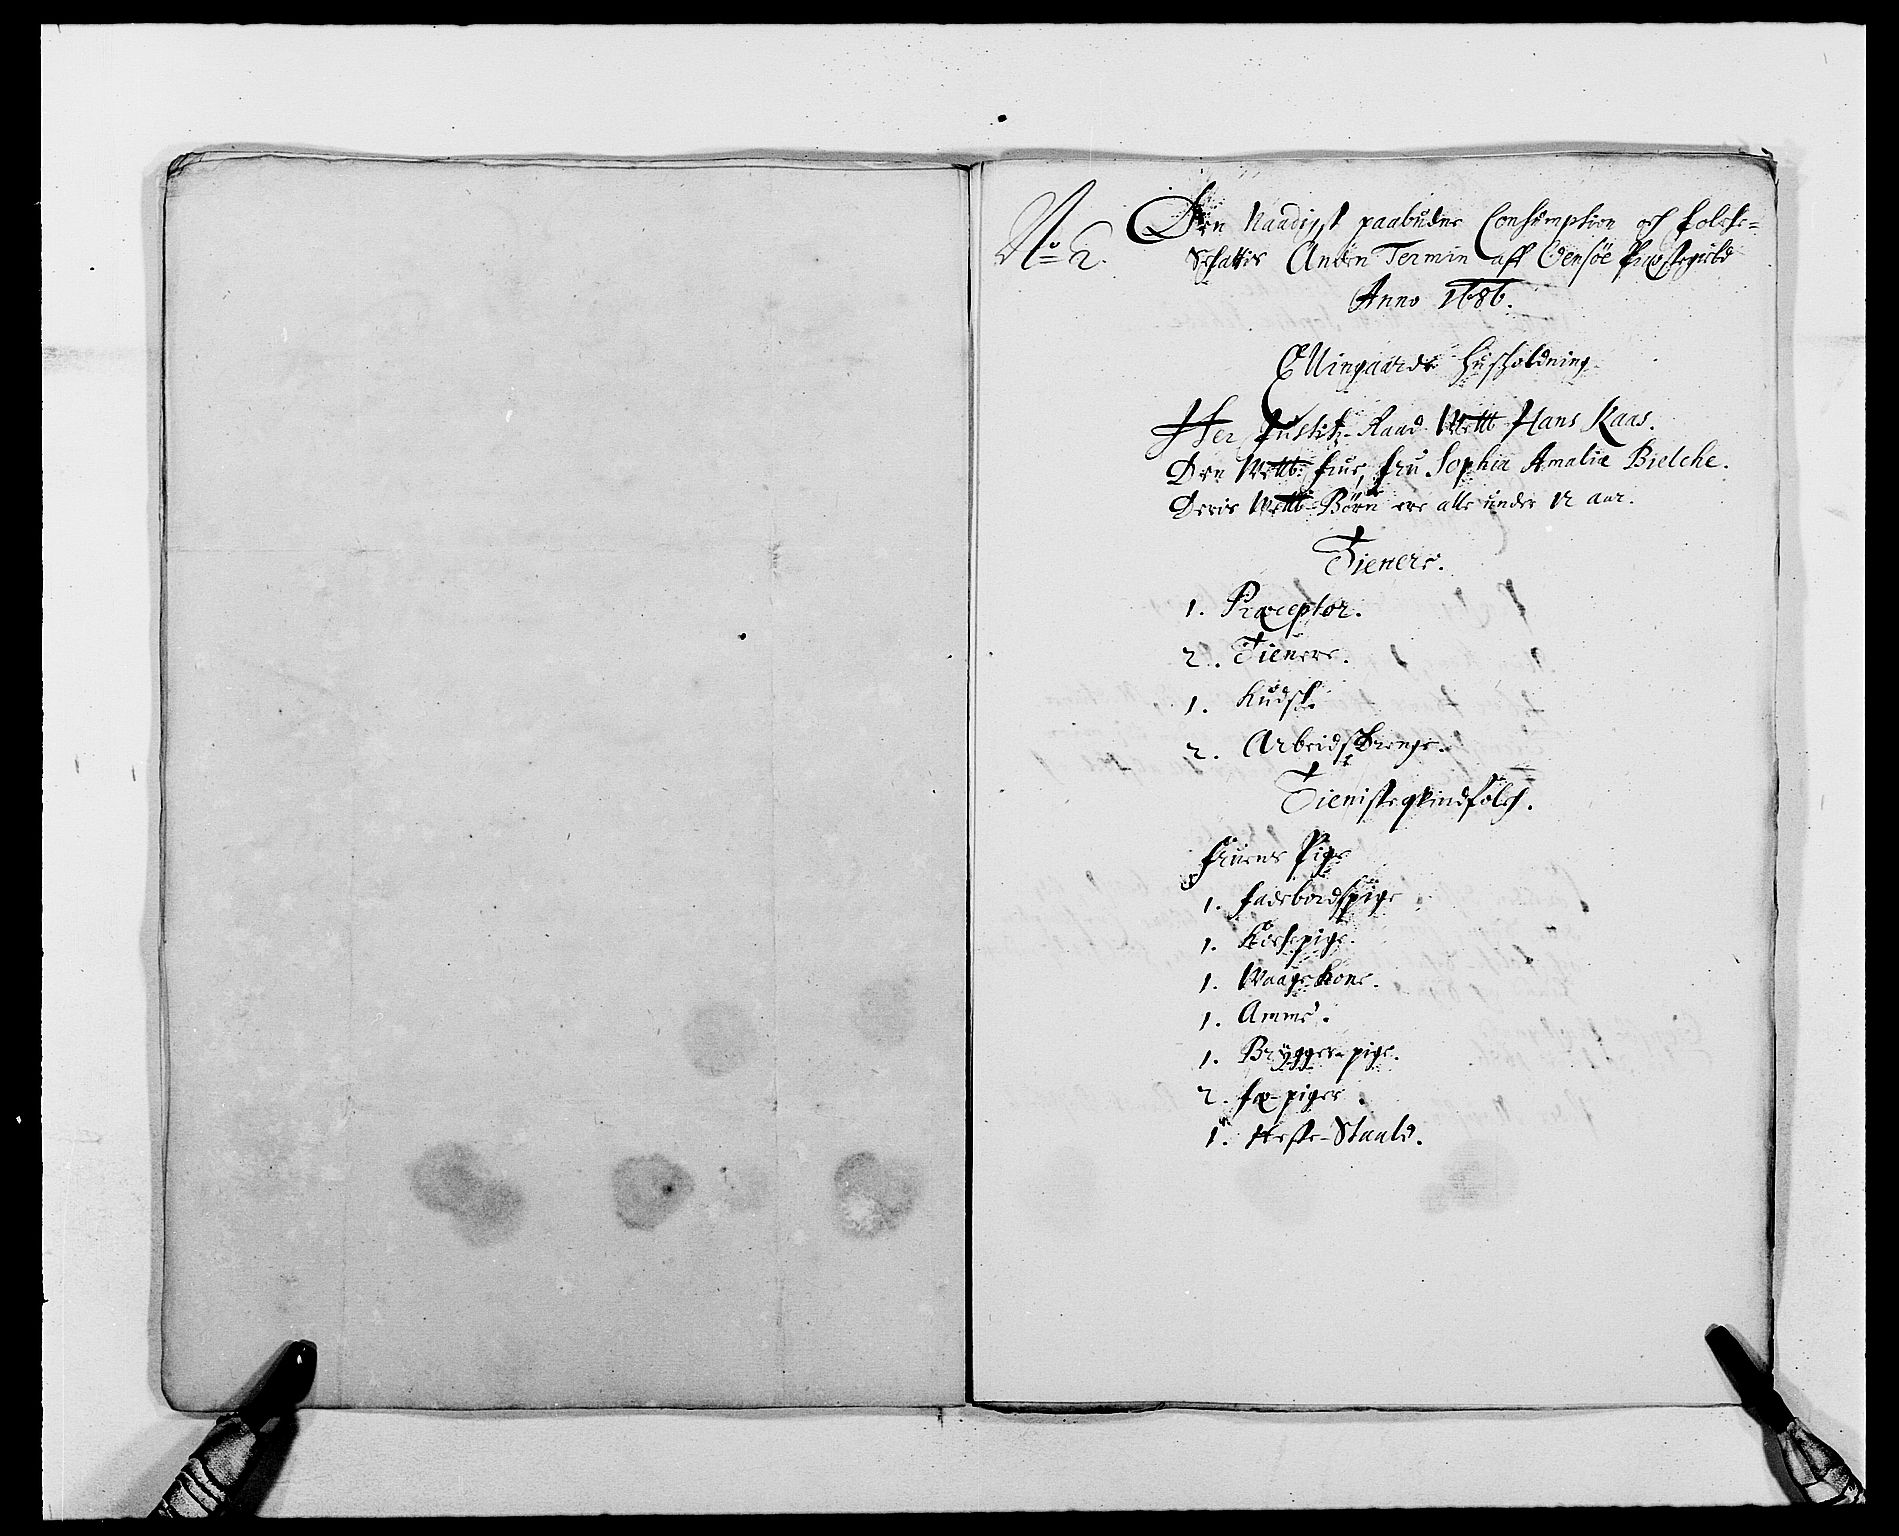 No 2.
Den Naadigst paabudne Consumption och folche-
Schattis Anden Termin aff Oensøe Prestegield
Anno 1686.
Ellingaards Husholdning.
Her Justitz-Raad Welb Hans Kaas.
Den Welb: frue, fru Sophia Amalia Bielche.
Deris Welb: Børn ere alle under 12 aar.
Tienere.
1. Præceptor.
2. Tienere.
1. Kudsk.
2. Arbeidsdrenge.
Tienisteqvindfolch.
Fruens Pige
1. fadebordspige
1. Kochepige.
1. Waage-Kone.
1. Amme.
1. Brygger-pige.
2. fæ-piger.
1. Heste-Stald.